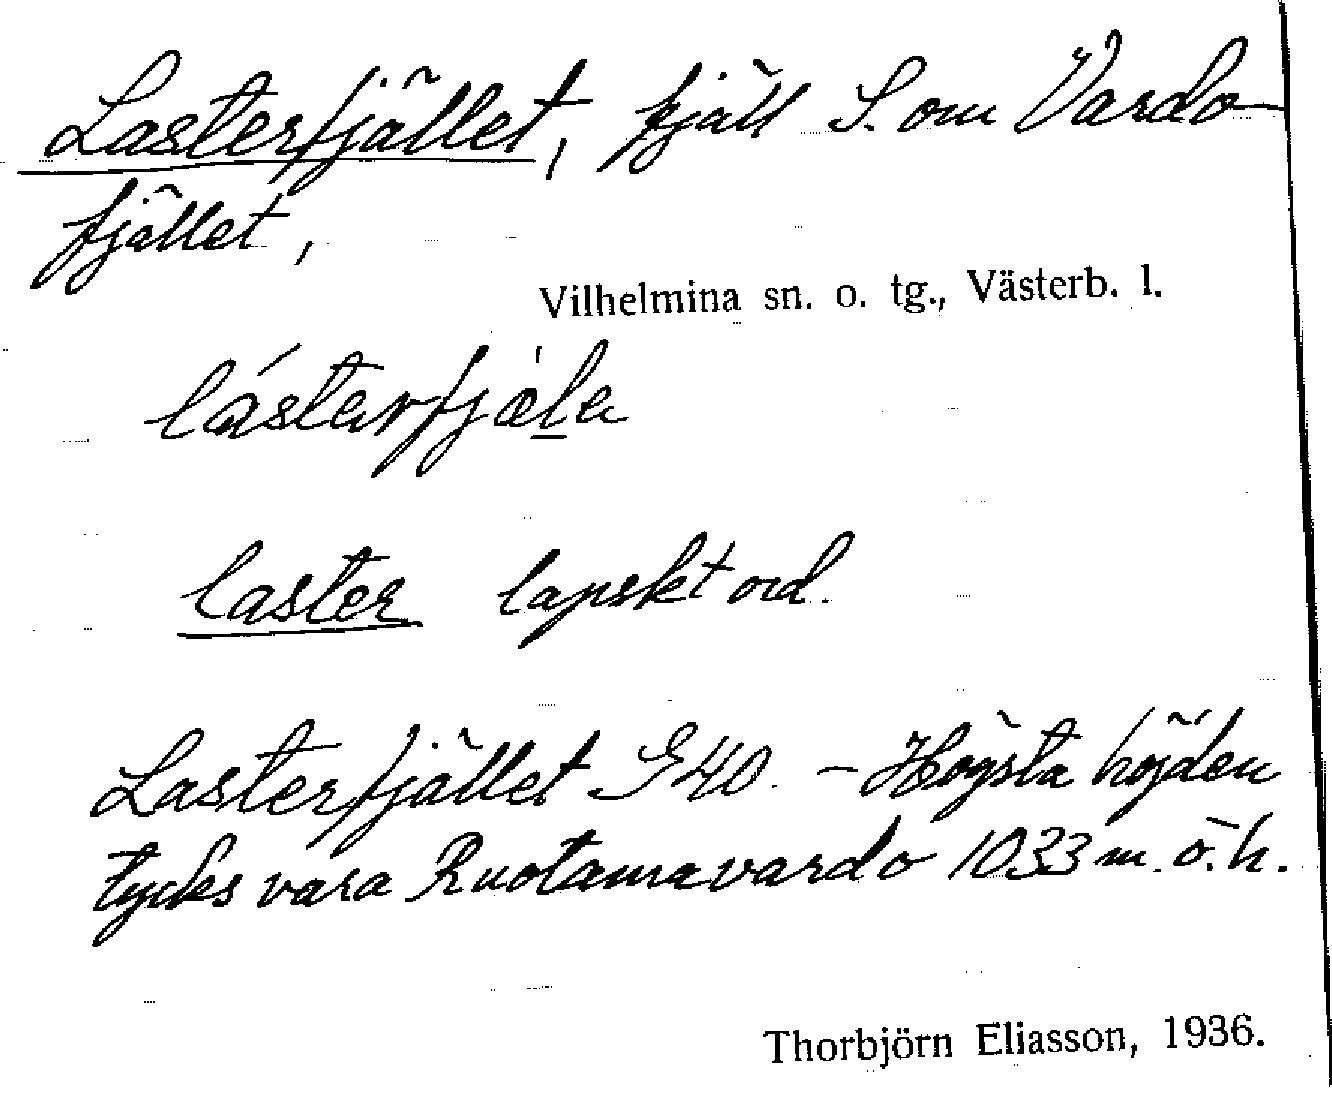 Lasterfjället, fjäll S. om Vardo-
fjället,
Vilhelmina sn. o. tg., Västerb. l.
lásterfjæ̀le
laster lapskt ord.
Lasterfjället G40. - Högsta höjden
tycks vara Ruotamavardo 1033 m. ö. h.
Thorbjörn Eliasson, 1936.